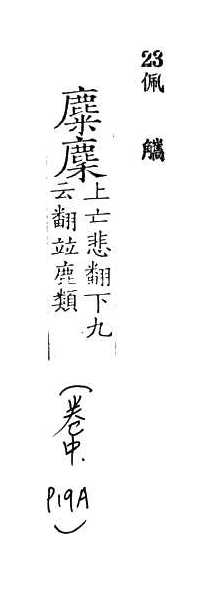 23佩觿
麋麇
上亡悲翻下九
云翻竝鹿類
(卷中.
P19A)